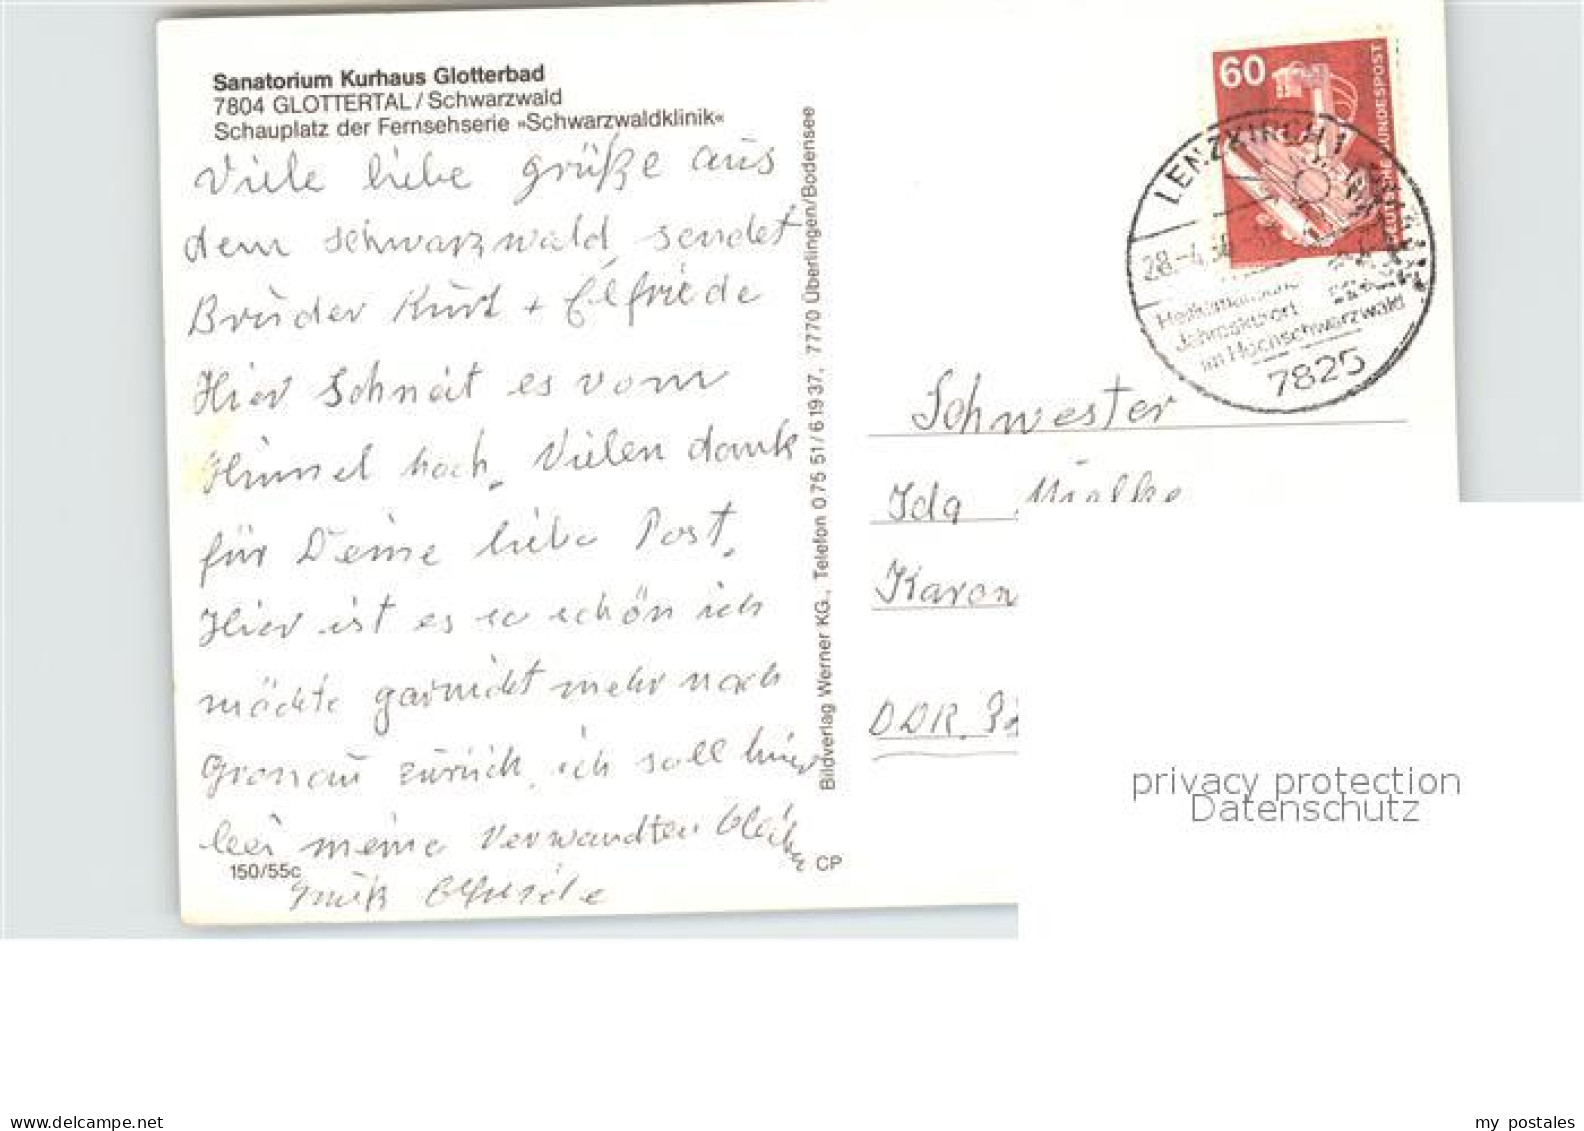 Sanatorium Kurhaus Glotterbad
7804 GLOTTERTAL / Schwarzwald
Schauplatz der Fernsehserie »Schwarzwaldklinik«
Viele liebe grüße aus
dem schwarzwald sendet
Bruder Kurt + Elfriede
Hier Schneit es vom
Himmel hoch. Vielen dank
für Deine liebe Post.
Hier ist es so schön ich
möchte garnicht mehr nach
Gronau zurück. ich soll hier
bei meine Verwandten
Gruß Elfriede
150/55c
CP
Bildverlag Werner KG., Telefon 0 75 51 / 6 19 37, 7770 Überlingen/Bodensee
60
DEUTSCHE BUNDESPOST
LENZKIRCH 1
28.-4.
Heilklimatische
Jahreskurort
im Hochschwarzwald
7825
Schwester
Ida
Karon
DDR.
privacy protection
Datenschutz
delcampe.net
my postales